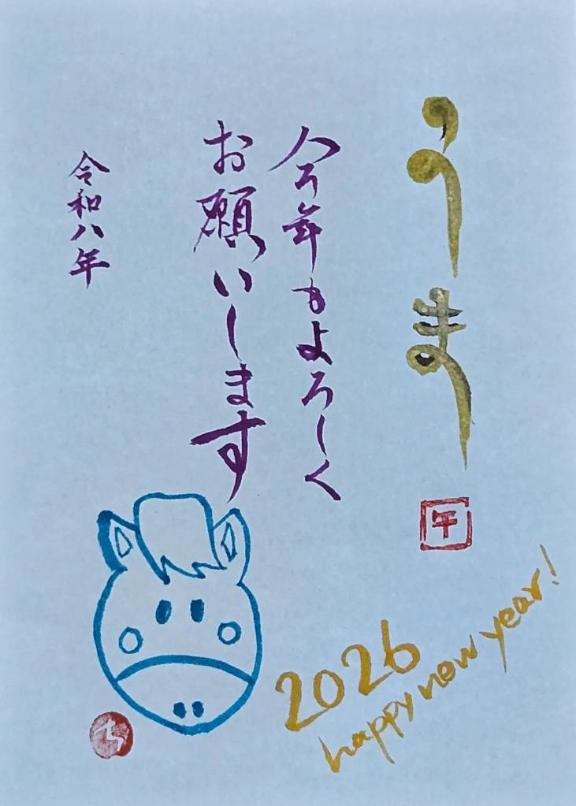 うま
午
今年もよろしく
お願いします
令和八年
ち
2026
happy new year!